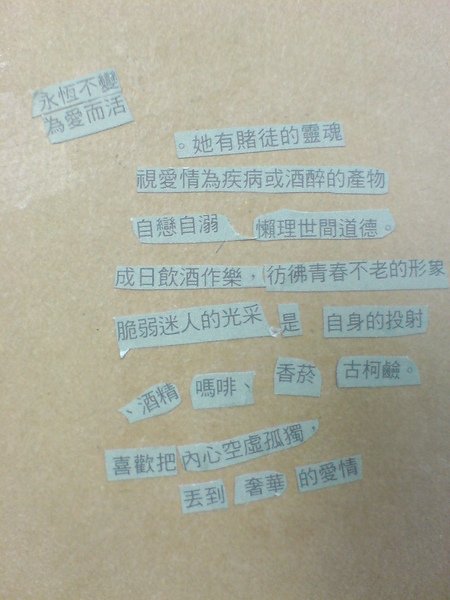 永恆不變
為愛而活
。她有賭徒的靈魂
視愛情為疾病或酒醉的產物
自戀自溺 懶理世間道德。
成日飲酒作樂，彷彿青春不老的形象
脆弱迷人的光采 是 自身的投射
、酒精 嗎啡、 香菸 古柯鹼。
喜歡把 內心空虛孤獨，
丟到 奢華 的愛情